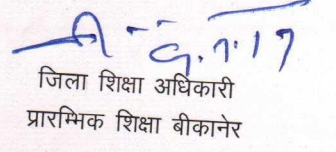 जिला शिक्षा अधिकारी
प्रारम्भिक शिक्षा बीकानेर